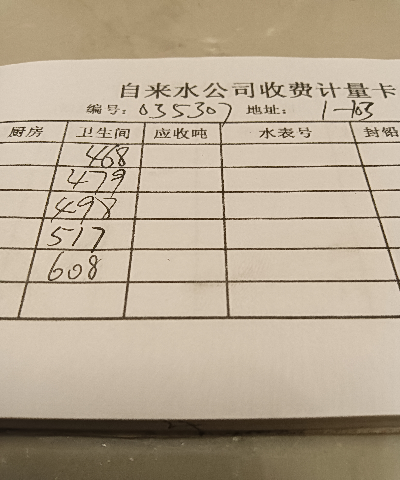 自来水公司收费计量卡
编号: 035307 地址: 1-103
厨房 卫生间 应收吨 水表号 封铅
468
479
498
517
608